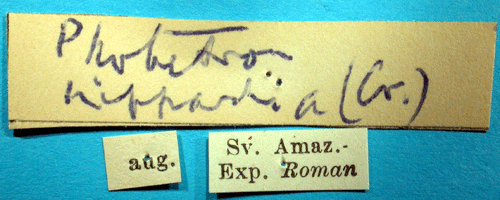 Phobetron
hipparchia (Cr.)
aug.
Sv. Amaz.-
Exp. Roman